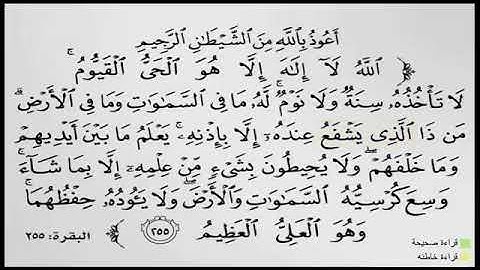 أَعُوذُ بِٱللَّهِ مِنَ ٱلشَّيْطَانِ ٱلرَّجِيمِ
ٱللَّهُ لَآ إِلَٰهَ إِلَّا هُوَ ٱلْحَىُّ ٱلْقَيُّومُ ۚ
لَا تَأْخُذُهُۥ سِنَةٌ وَلَا نَوْمٌ ۚ لَّهُۥ مَا فِى ٱلسَّمَٰوَٰتِ وَمَا فِى ٱلْأَرْضِ ۗ
مَن ذَا ٱلَّذِى يَشْفَعُ عِندَهُۥٓ إِلَّا بِإِذْنِهِۦ ۚ يَعْلَمُ مَا بَيْنَ أَيْدِيهِمْ
وَمَا خَلْفَهُمْ ۖ وَلَا يُحِيطُونَ بِشَىْءٍ مِّنْ عِلْمِهِۦٓ إِلَّا بِمَا شَآءَ ۚ
وَسِعَ كُرْسِيُّهُ ٱلسَّمَٰوَٰتِ وَٱلْأَرْضَ ۖ وَلَا يَـُٔودُهُۥ حِفْظُهُمَا ۚ
وَهُوَ ٱلْعَلِىُّ ٱلْعَظِيمُ ٢٥٥ البقرة: ٢٥٥
قراءة صحيحة
قراءة خاطئه